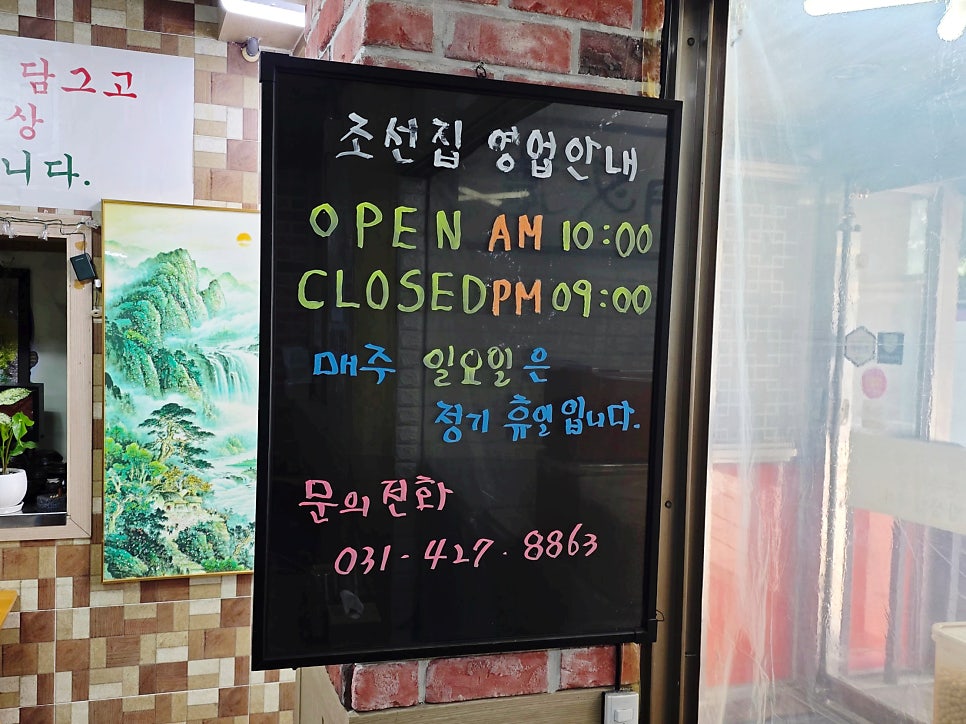 담그고
상
니다.
조선집 영업안내
OPEN AM 10:00
CLOSED PM 09:00
매주 일요일은
정기 휴일입니다.
문의전화
031-427.8863